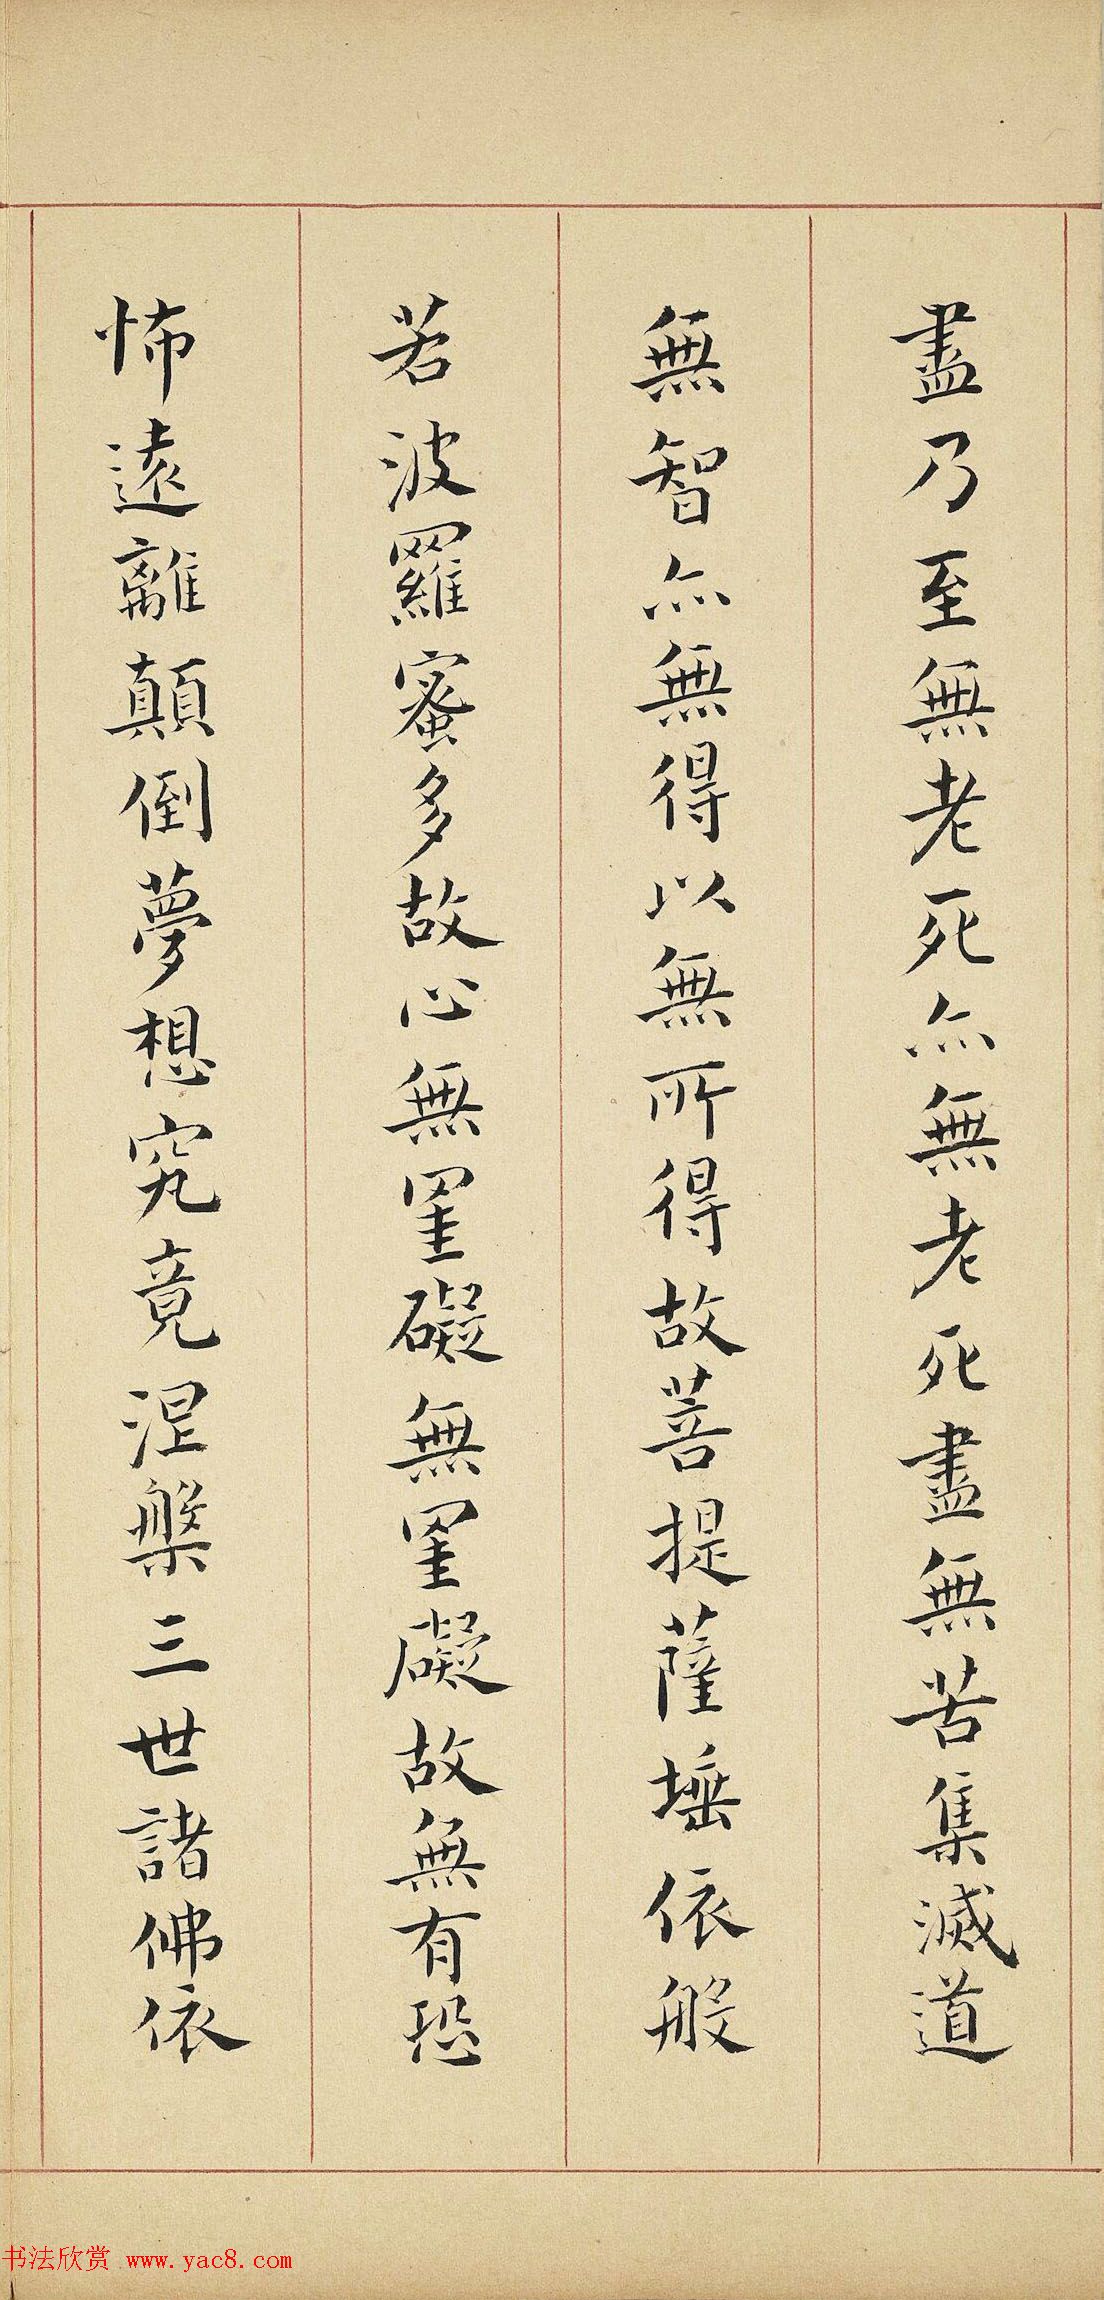 盡乃至無老死亦無老死盡無苦集滅道
無智亦無得以無所得故菩提薩埵依般
若波羅蜜多故心無罣礙無罣礙故無有恐
怖遠離顛倒夢想究竟涅槃三世諸佛依
书法欣赏 www.yac8.com